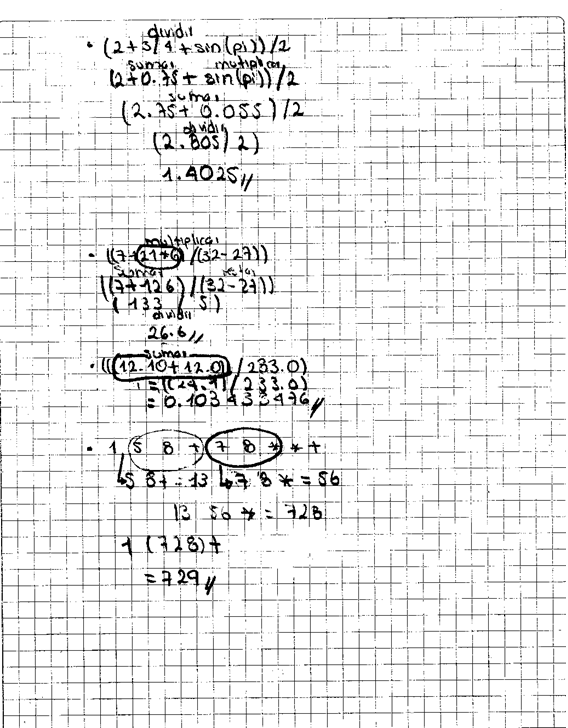 dividir
• (2+3/4 + sin(pi))/2
sumar multiplicar
(2+0.75+ sin(pi))/2
sumar
(2.75+ 0.055)/2
dividir
(2.805/2)
1.4025//
multiplicar
• ((7+(21*6)/(32-27))
sumar restar
((7+126)/(32-27))
(133 / 5)
dividir
26.6//
sumar
• (((12.10+12.0)/233.0)
=((24.1)/233.0)
= 0.103433476//
• 1 5 8 + 7 8 * * +
5 8+ = 13 7 8 * = 56
13 56 * = 728
1 (728)+
= 729//